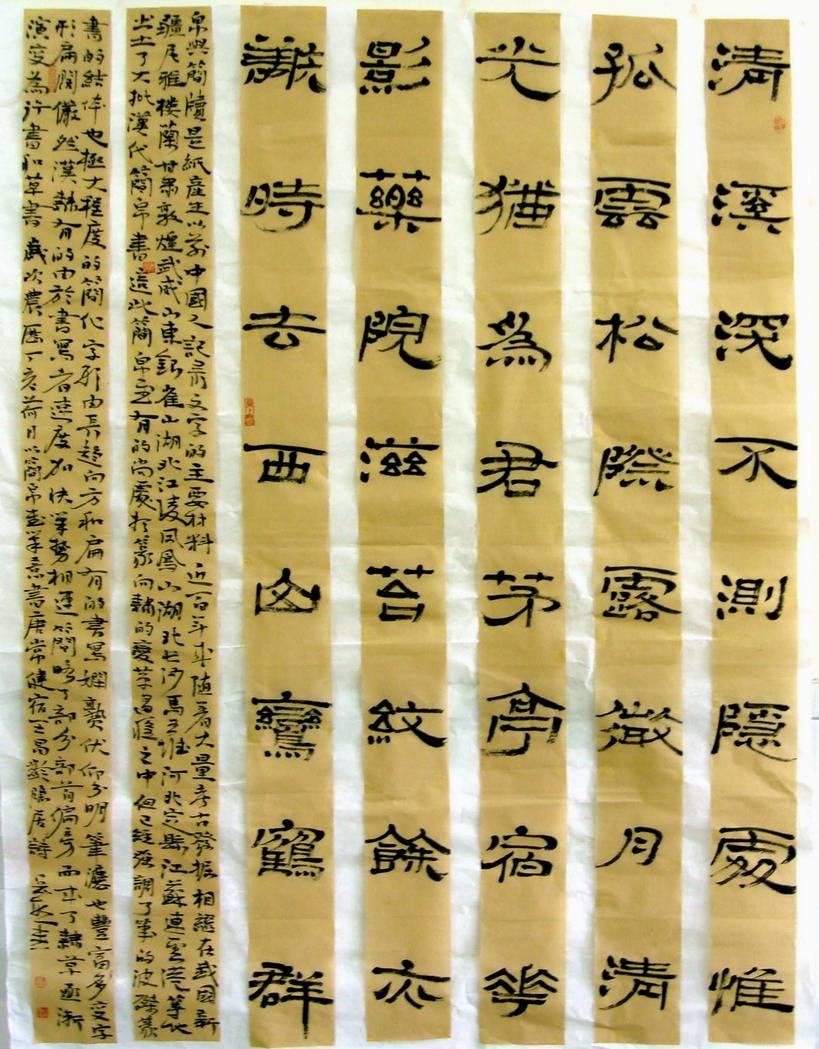 清溪深不測隱處惟
孤雲松際露微月清
光猶為君茅亭宿花
影藥院滋苔紋餘亦
謝時去西山鸞鶴群
帛與簡牘是紙産生以前中國人記录文字的主要材料近百年来随着大量考古發掘相繼在我國新
疆尼雅樓蘭甘肅敦煌武威山東銀雀山湖北江陵鳳山湖北长沙馬王堆河北定縣江蘇連雲港等地
出土了大批漢代簡帛書這些簡帛書有的尚處於篆向隸的變革過渡之中但已經強調了筆的波磔
書的結体也極大程度的簡化字形由長趨向方和扁有的書寫嫻熟伏仰分明筆也豐富多變字
形扁闊儼然漢隸有的由於書寫者速度加快筆勢相連簡略了部分部首偏旁而成了隸草逐漸
演變為行書和草書歲次農厯丁亥荷月以簡帛書筆意書唐常建宿王昌齡隱居詩